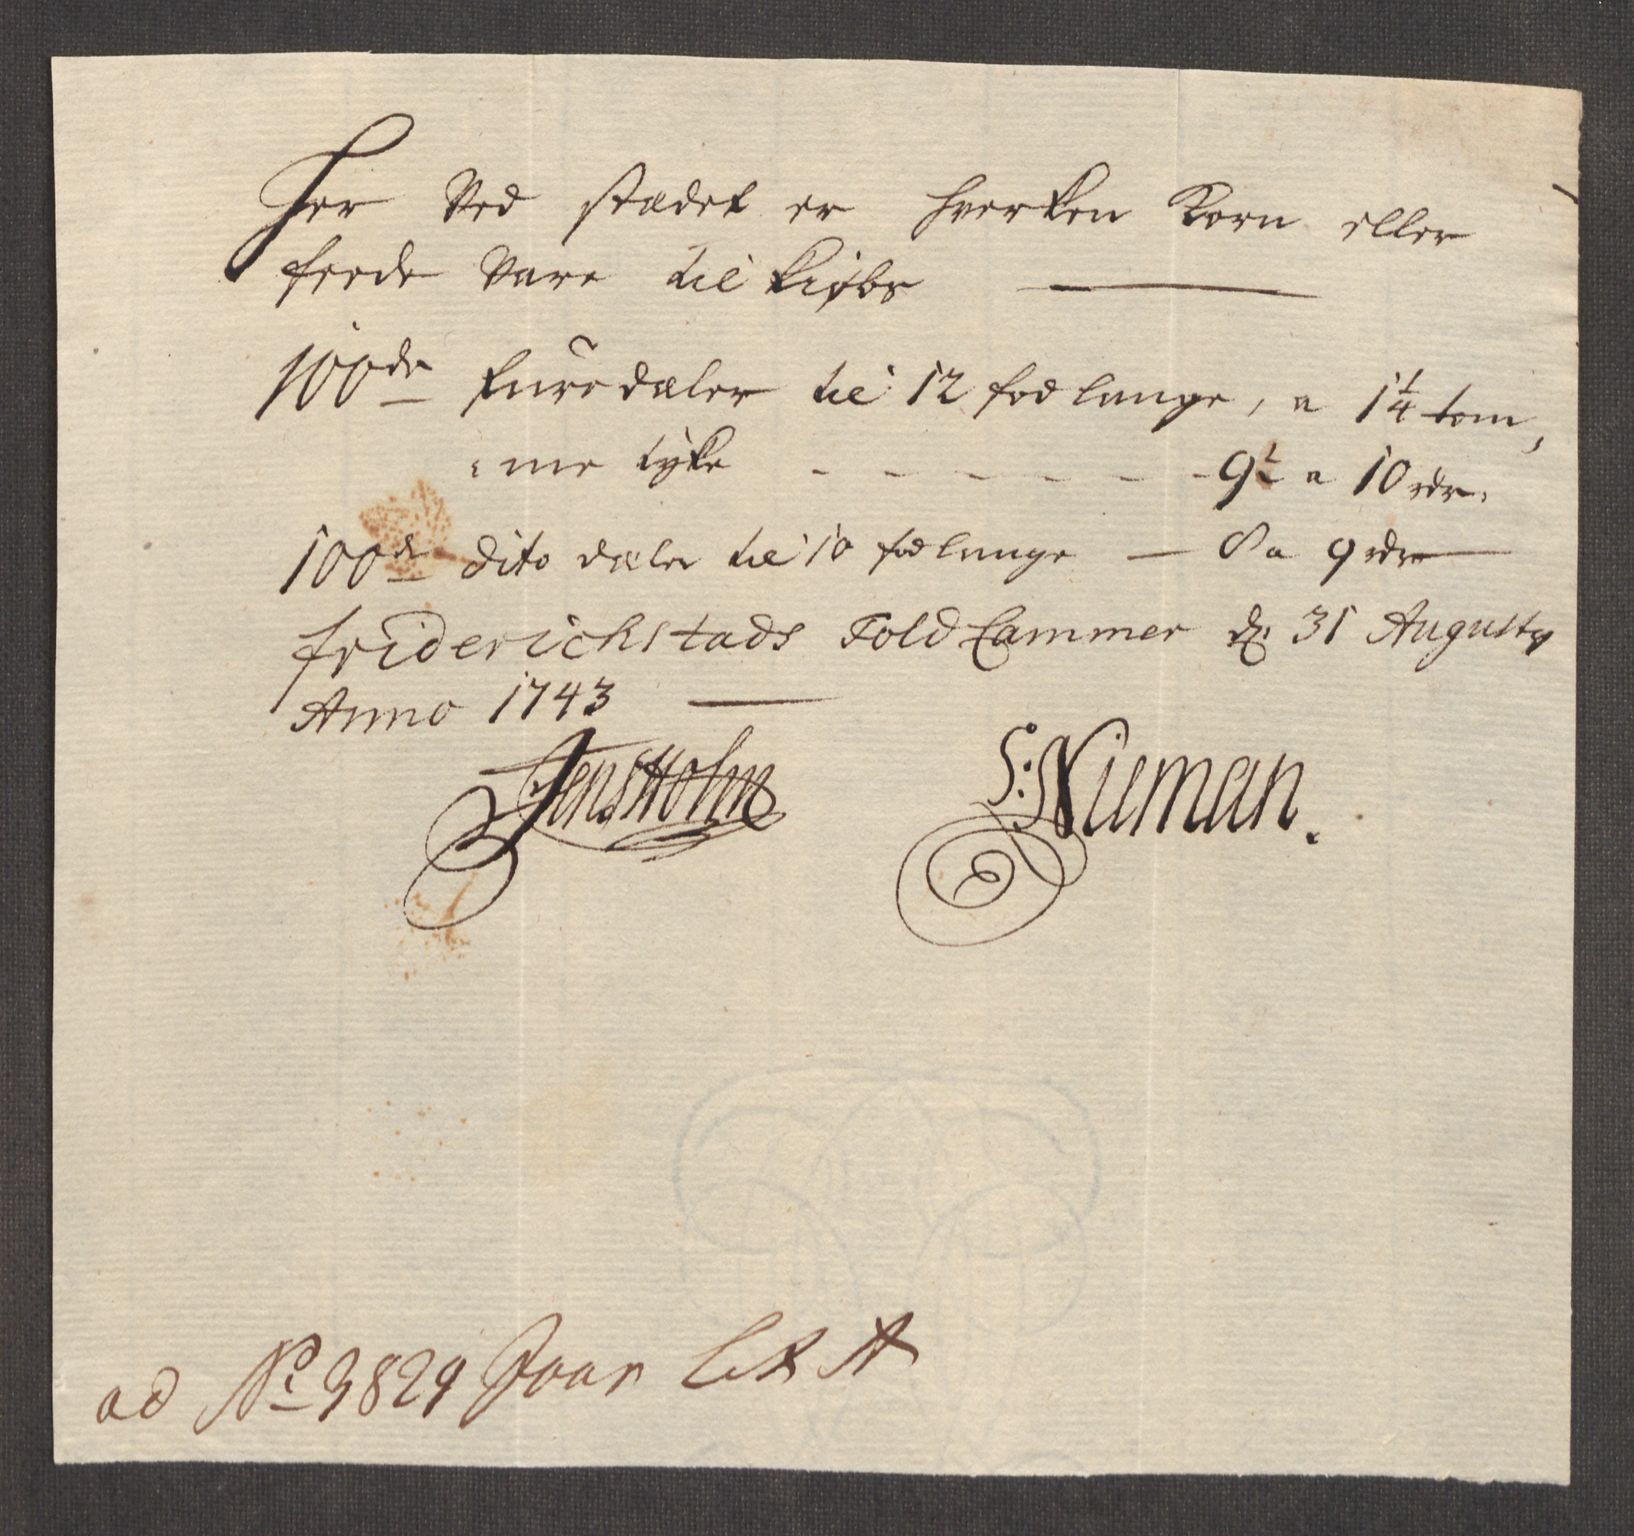 Her Ved stædet er hverken Korn eller
feede Vare til kiøbs
100de furedæler til 12 fod lange, a 1¼ tom,
me tÿke - - - - - - - 9½ a 10 rdr.
100de dito dæler til 10 fod lange — 8 a 9 rdr
friderichstads Told Cammer d. 31 Augusty
Anno 1743
Jens Holm
S: Nieman.
ad No 3829 Lit A